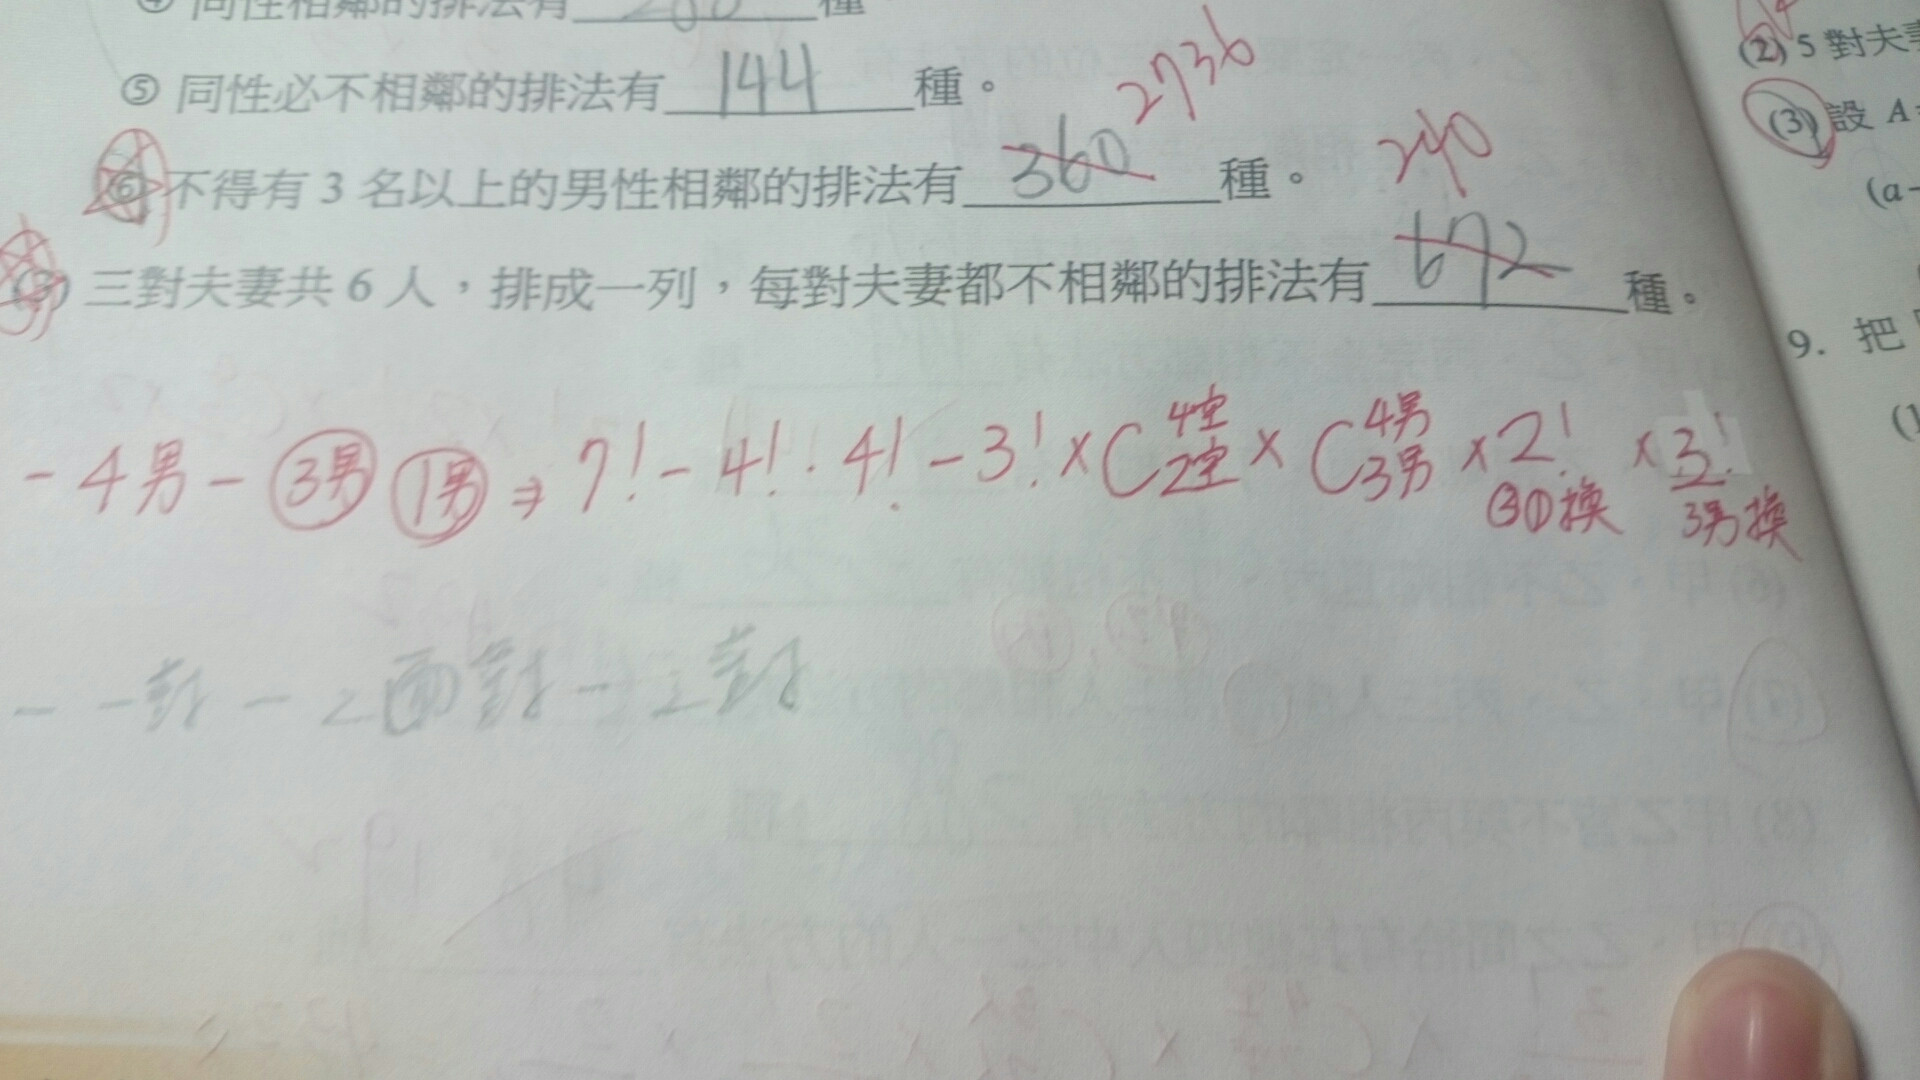 ④ 同性相鄰的排法有 種
⑤ 同性必不相鄰的排法有 144 種。
2736
⑥ 不得有 3 名以上的男性相鄰的排法有 360 種。
240
三對夫妻共 6 人,排成一列,每對夫妻都不相鄰的排法有 672 種。
- 4男 - 3男 1男 ⇒ 7! - 4! · 4! - 3! × C 4空 2空 × C 4男 3男 × 2! × 3!
③①換 3男換
- 一對 - 2 對 - 對
(2) 5 對夫
(3) 設 A
(a-
9. 把